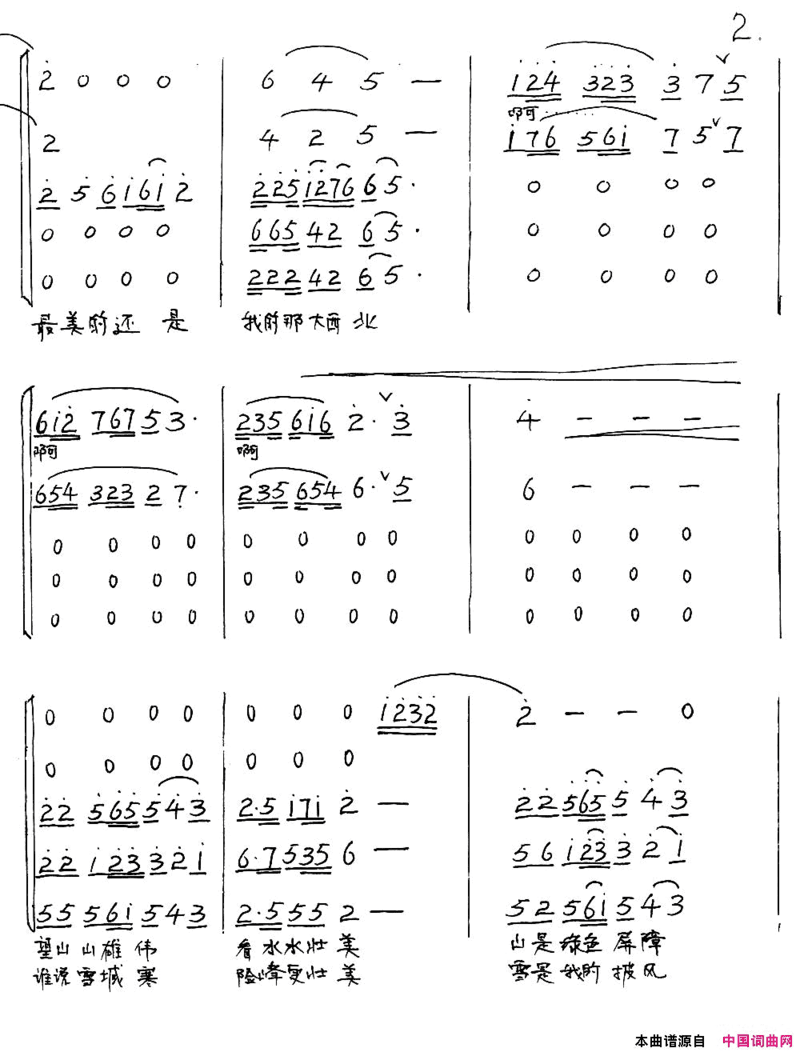 2.
2̇ 0 0 0 6 4 5 — 1̇2̇4̇ 3̇2̇3̇ 3̇ 7 5
啊
2 4 2 5 — 1̇76 561̇ 7 5 7
2̇ 5̇ 6̇1̇61̇ 2̇ 2̇2̇5̇1̇2̇76 65·
0 0 0 0 665 42 65· 0 0 0 0
0 0 0 0 222 42 65· 0 0 0 0
最美的还 是 我的那大西 北
61̇2̇ 767 5 3· 235 61̇6 2̇· 3̇ 4̇ — — —
啊 啊
654 323 2 7̣· 235 654 6· 5 6 — — —
0 0 0 0 0 0 0 0 0 0 0 0
0 0 0 0 0 0 0 0 0 0 0 0
0 0 0 0 0 0 0 0 0 0 0 0
0 0 0 0 0 0 0 1̇2̇3̇2̇ 2̇ — — 0
0 0 0 0 0 0 0
2̇2̇ 5̇6̇5̇ 5̇4̇3̇ 2·5 1̇71̇ 2̇ — 2̇2̇5̇6̇5̇ 5̇ 4̇3̇
2̇2̇ 1̇2̇3̇ 3̇2̇1̇ 6·7535 6 — 56 1̇2̇3̇ 3̇ 2̇1̇
55 561̇ 543 2·555 2 — 52 561̇ 5 43
望山 山雄 伟 看 水水壮 美 山是 绿色 屏障
谁说 雪域 寒 险峰更壮 美 雪是 我的 披风
本曲谱源自 中国词曲网